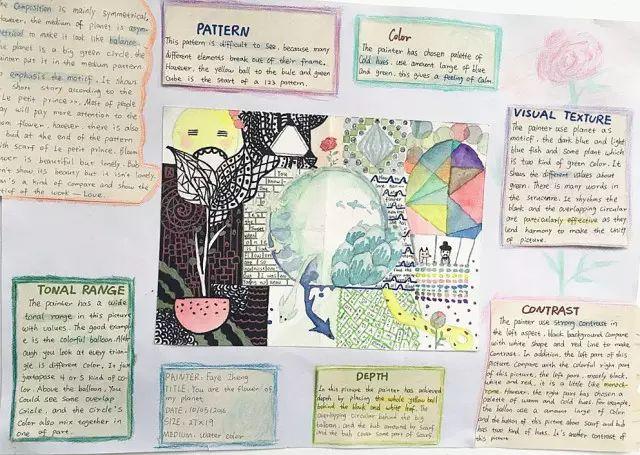 The Composition is mainly symmetrical,
however, the medium of planet is asym-
metrical to make it look like balance.
The planet is a big green circle the
painter put it in the medium pattern
emphasis the motif. It shows
Short story according to the
Le petit Prince>>. Most of people
may will pay more attention to the
flower, however, there is also
bud at the end of the pattern
with scarf of Le petit prince. Bloom
is beautiful but lonely. Bub
show its beauty but it isn't lonely.
is a kind of compare and show the
motif of the work — Love.
PATTERN
This pattern is difficult to see, because many
different elements break out of their frame.
However, the yellow ball to the bule and green
Cube is the start of a 123 pattern.
Color
The painter has chosen palette of
Cold hues. use amount large of blue
and green. this gives a feeling of Calm.
VISUAL TEXTURE
The painter use planet as
motif, the dark blue and light
blue fish and some plant which
is two kind of green color. It
shows the different values about
green. There is many words in
the structure. It rhythms the
blank and the overlapping circular
are particularly effective as they
lend harmony to make the unity
of picture.
TONAL RANGE
The painter has a wide
tonal range in this picture
with values. The good exampl-
e is the colorful balloon. Alth-
ough you look at every trian-
gle is different color, It just
juxtapose 4 or 5 kind of co-
lor. Above the balloon, You
Could see some overlap
Circle, and the Circle's
Color also mix together in
one of part.
PAINTER: Faye Zheng
TITLE: You are the flower of
my planet
DATE: 10/05/2016
SIZE: 27×19
MEDIUM: water color
DEPTH
In this picture the painter has achieved
depth by placing the whole yellow ball
behind the black and white leaf. The
overlapping circular behind the big
balloon, and the bub around by scarf
and the bub cover some part of scarf.
CONTRAST
The painter use strong contrast in
the left aspect, black background Compare
with white shape and red line to make
Contrast. In addition, the left part of this
picture Compare with the colorful right part
of this picture, the left part, mostly black,
white and red, it is a little like monoch-
rome. However, the right part has chosen a
palette of warm and Cold hues. For example,
the balloon use a amount large of Color
and the button of this picture also scarf and bub
has two kind of hues. It's another contrast of
this picture